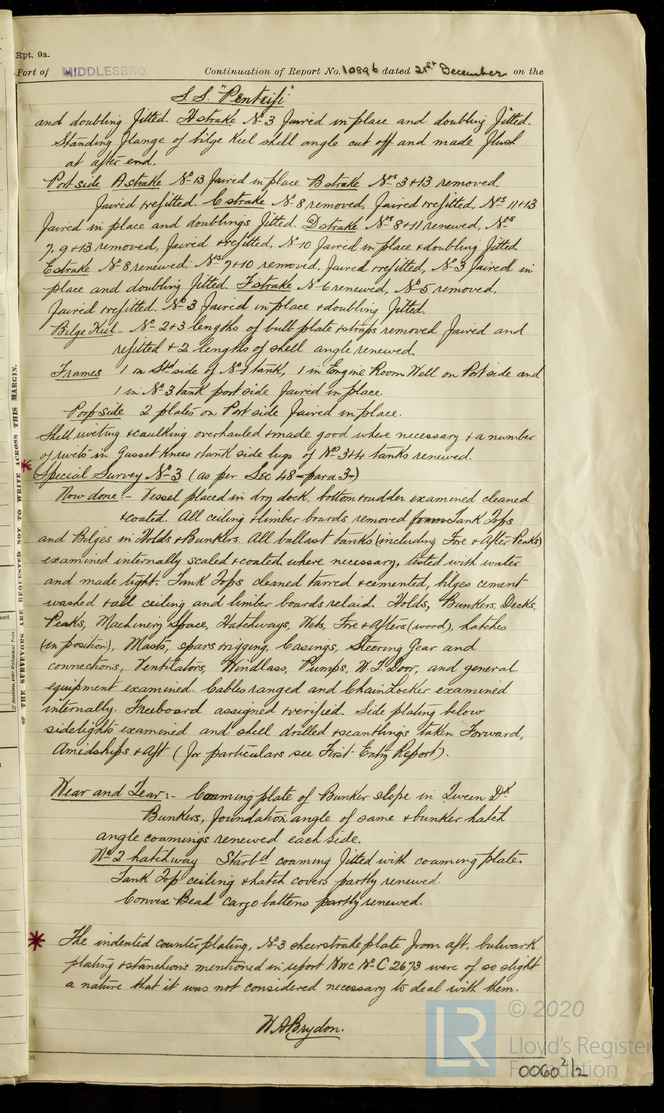 Rpt. 9a.
Port of MIDDLESBRO Continuation of Report No. 10896 dated 21st December on the
S.S. "Pentrift"
and doubling fitted. H strake No 3 faired in place and doubling fitted.
Standing flange of bilge keel shell angle cut off and made flush
at after end.
Port side A strake No 13 faired in place B strake Nos 3+13 removed,
faired + refitted. C strake No 8 removed, faired + refitted Nos 11+13
faired in place and doublings fitted. D strake Nos 8+11 renewed, Nos
7, 9+13 removed, faired + refitted, No 10 faired in place + doubling fitted
E strake No 8 renewed. Nos 7+10 removed, faired + refitted, No 3 faired in
place and doubling fitted. F strake No 6 renewed, No 5 removed,
faired + refitted. No 3 faired in place + doubling fitted.
Bilge Keel - No 2+3 lengths of bulb plate + straps removed faired and
refitted + 2 lengths of shell angle renewed.
Frames 1 on St side of No 1 tank, 1 in Engine Room Well on Port side and
1 in No 3 tank port side faired in place.
Poop side 2 plates on Port side faired in place.
Shell riveting + caulking overhauled + made good where necessary + a number
of rivets in Gusset knees + tank side lugs of No 3+4 tanks renewed.
Special Survey No 3 (as per Sec 48 - para 3-)
Now done :- Vessel placed in dry dock, bottom + rudder examined cleaned
+ coated. All ceiling + limber boards removed from Tank Tops
and Bilges in Holds + Bunkers. All ballast tanks (including Fore + After Peaks)
examined internally scaled + coated where necessary, tested with water
and made tight. Tank Tops cleaned tarred + cemented, bilges cement
washed + all ceiling and limber boards relaid. Holds, Bunkers, Decks,
Peaks, Machinery Space, Hatchways, Webs, Fore + Afters (wood), hatches
(in position), Masts, spars + rigging, Casings, Steering Gear and
connections, Ventilators, Windlass, Pumps, W.T. Door, and general
equipment examined. Cables ranged and Chain Locker examined
internally. Freeboard assigned + verified. Side plating below
sidelights examined and shell drilled + scantlings taken Forward,
Amidships + Aft (for particulars see First Entry Report).
Wear and Tear :- Coaming plate of Bunker slope in Tween Dk
Bunkers, foundation angle of same + bunker hatch
angle coamings renewed each side.
No 2 hatchway Starbd coaming fitted with coaming plate.
Tank Top ceiling + hatch covers partly renewed.
Convex Bead cargo battens partly renewed.
The indented counter plating, No 3 sheerstrake plate from aft, bulwark
plating + stanchions mentioned in report Nwc No C 2673 were of so slight
a nature that it was not considered necessary to deal with them.
W. A. Brydon.
OF THE SURVEYORS ARE REQUESTED NOT TO WRITE ACROSS THIS MARGIN.
LR
© 2020
Lloyd's Register
Foundation
0060 2/2